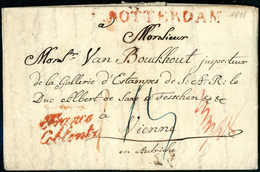 ROTTERDAM
à Monsieur
Monsr Van Bouckhout Inspecteur
de la Gallerie d'Estampes de S. A. R. le
Duc Albert de Saxe à Teschen &c
à
Vienne
en Autriche
franco
Coblentz